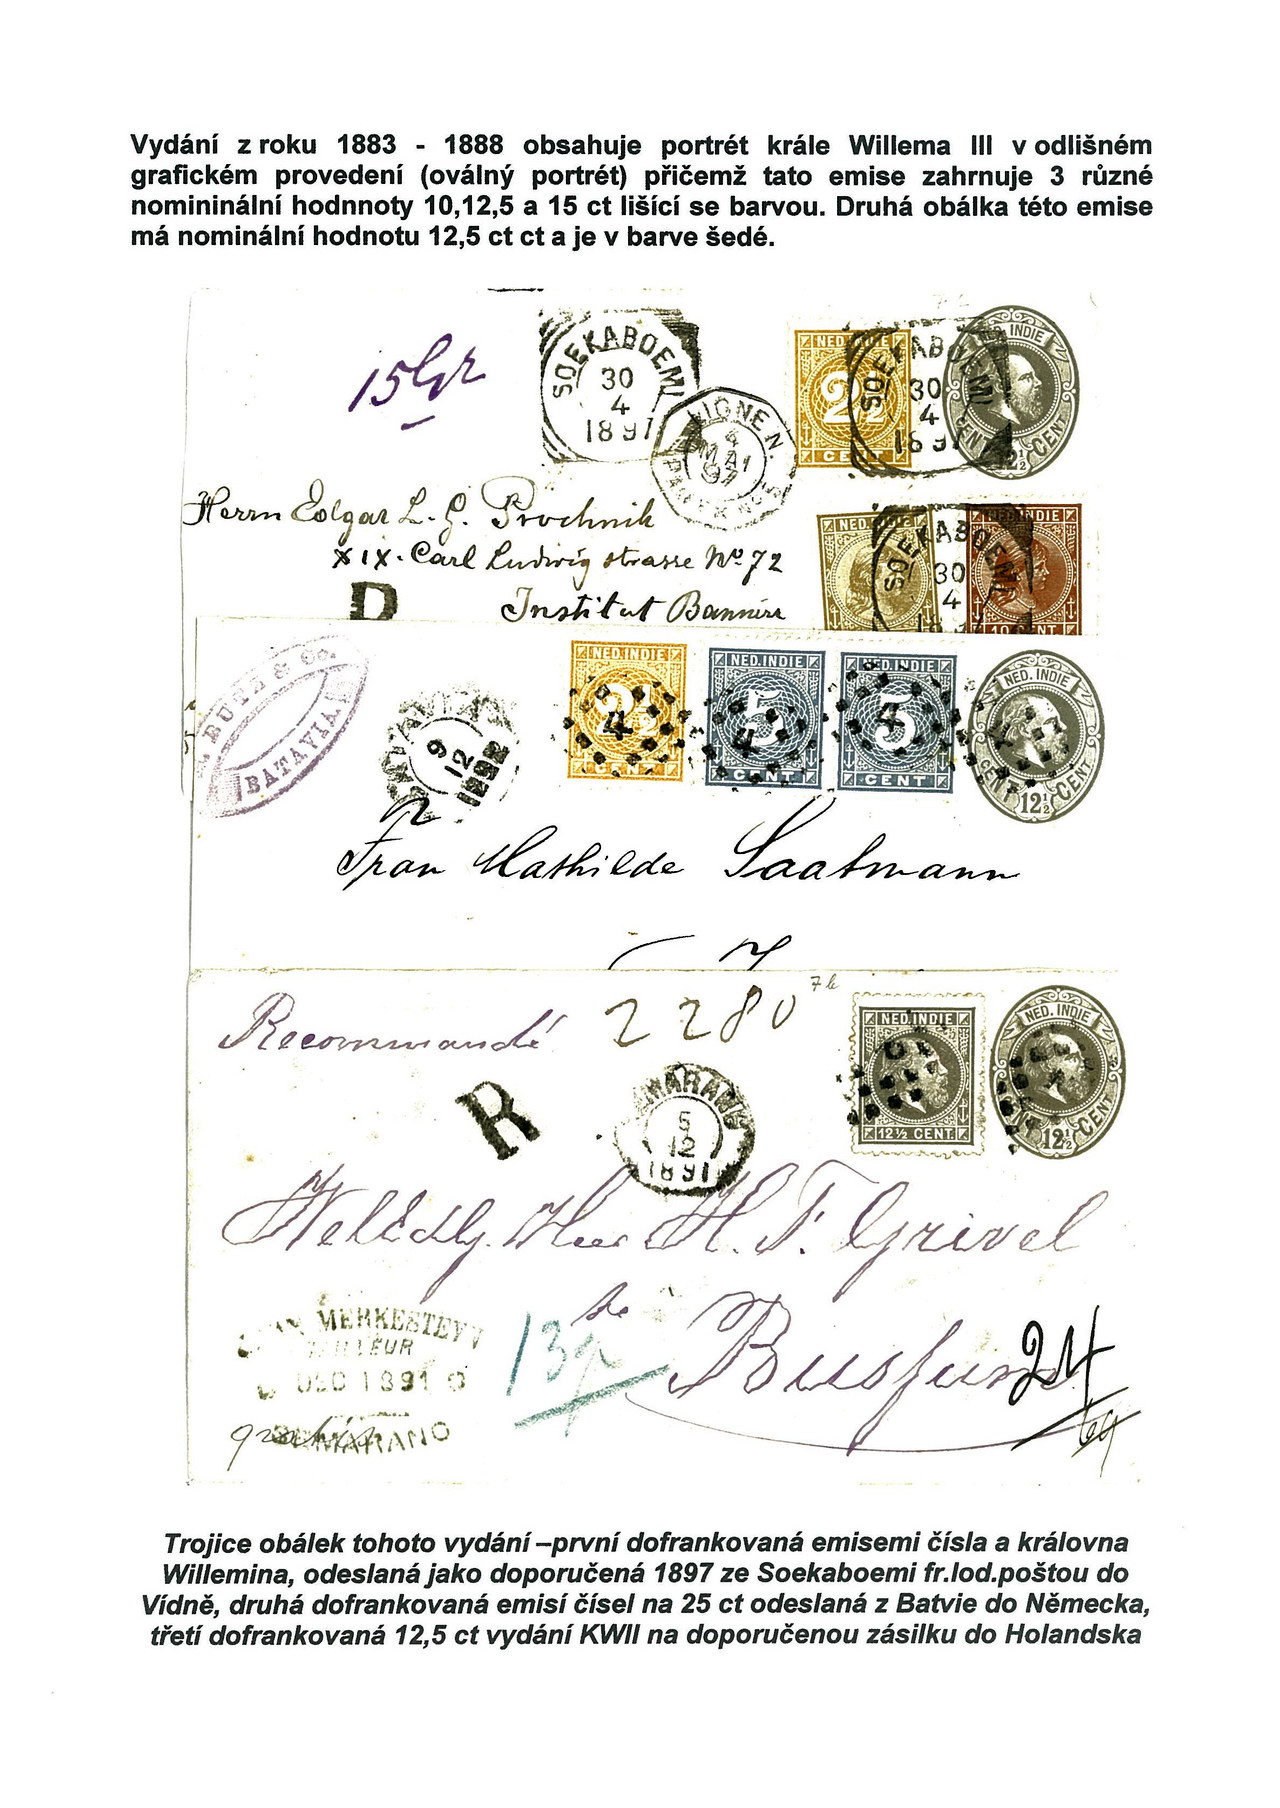 Vydání z roku 1883 - 1888 obsahuje portrét krále Willema III v odlišném
grafickém provedení (oválný portrét) přičemž tato emise zahrnuje 3 různé
nomininální hodnnoty 10,12,5 a 15 ct lišící se barvou. Druhá obálka této emise
má nominální hodnotu 12,5 ct ct a je v barve šedé.
15 Gr
SOEKABOEMI
30
4
1897
LIGNE N.
4
MAI
97
NED. INDIE
2½
CENT
SOEKABOEMI
30
4
1897
NED. INDIE
12½
CENT CENT
Herrn Edgar L. G. Prochnik
XIX. Carl Ludwig strasse No 72
Institut
R
NED. INDIE
SOEKABOEMI
30
4
NED. INDIE
10 CENT
& Co.
BATAVIA
BATAVIA
9
12
1892
NED. INDIE
2½
CENT
4
NED. INDIE
5
CENT
4
NED. INDIE
5
CENT
4
NED. INDIE
CENT 12½ CENT
Frau Mathilde Saatmann
Recommandé
2280
R
5
12
1891
NED. INDIE
12½ CENT.
NED. INDIE
12½ CENT
H. F. Grivel
te
Bussum
MERKESTEYN
TAILLEUR
DEC 1891
SEMARANG
13 gr
24
Trojice obálek tohoto vydání –první dofrankovaná emisemi čísla a královna
Willemina, odeslaná jako doporučená 1897 ze Soekaboemi fr.lod.poštou do
Vídně, druhá dofrankovaná emisí čísel na 25 ct odeslaná z Batvie do Německa,
třetí dofrankovaná 12,5 ct vydání KWII na doporučenou zásilku do Holandska